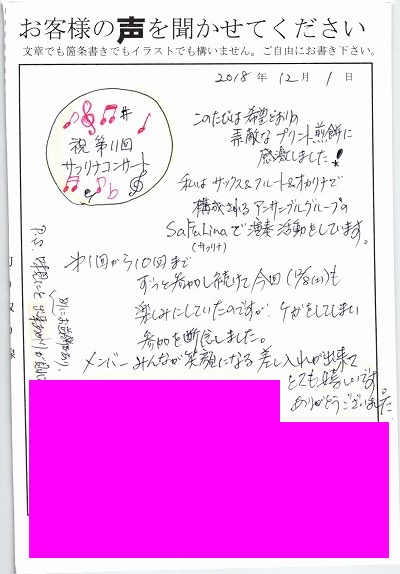 お客様の声を聞かせてください
文章でも箇条書きでもイラストでも構いません。ご自由にお書き下さい。
2018年 12月 1日
祝 第11回
サフリナコンサート
このたびは希望どおりの
素敵なプリント煎餅に
感激しました!
私はサックス&フルート&オカリナで
構成されるアンサンブルグループの
SaFuLinaで演奏活動をしています。
(サフリナ)
第1回から10回まで
ずっと参加し続けて今回(12/8(土))も
楽しみにしていたのですが ケガをしてしまい
参加を断念しました。
メンバーみんなが笑顔になる差し入れが出来て
とても嬉しいです。
ありがとうございました
P.S